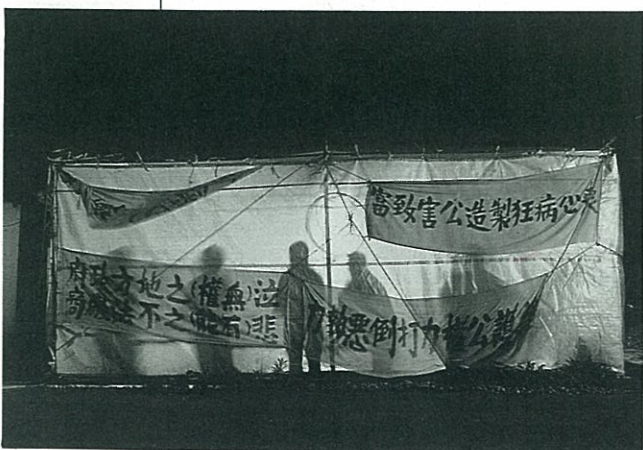 喪心病狂製造公害致富
泣(無權)之地方政府
悲(有能)之不法廠商
護公權力打倒惡勢力